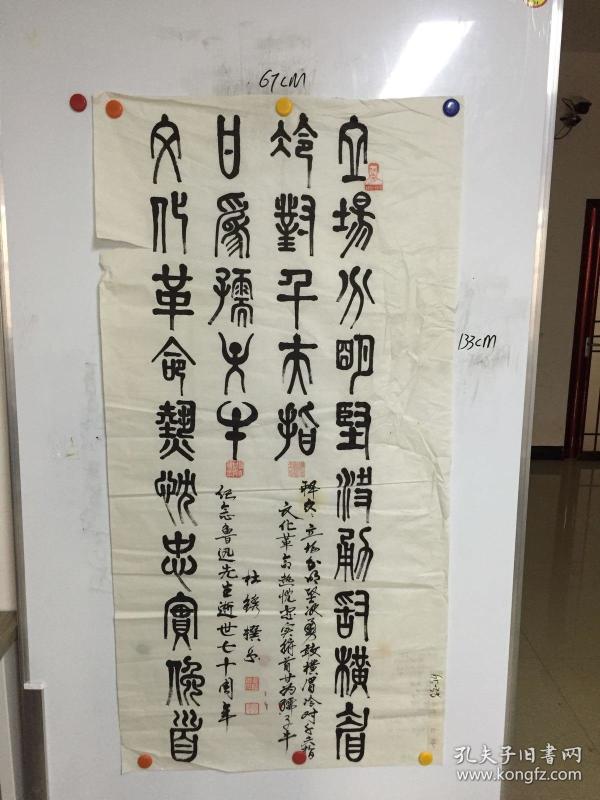 67CM
133CM
立場分明堅決勇敢橫眉
冷對千夫指
文化革命熱忱忠實俛首
甘爲孺子牛
释文：立场分明坚决勇敢横眉冷对千夫指
文化革命热忱忠实俯首甘为孺子牛
纪念鲁迅先生逝世七十周年
杜
孔夫子旧书网
www.kongfz.com